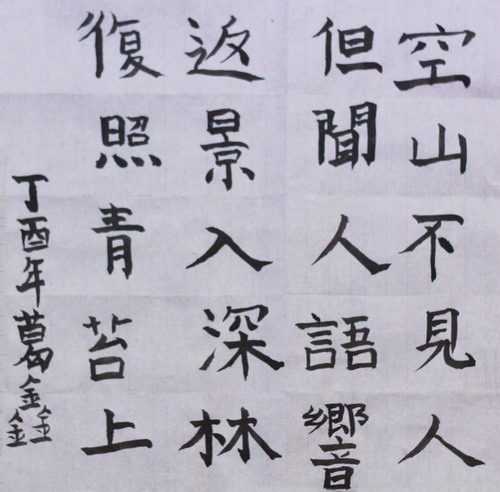 空山不見人
但聞人語響
返景入深林
復照青苔上
丁酉年葛鑫